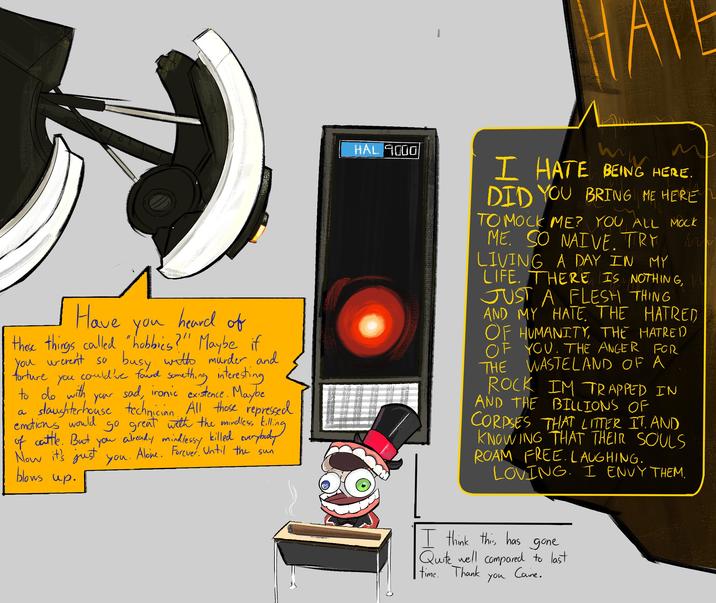 HATE
HAL 9000
I HATE BEING HERE.
DID YOU BRING ME HERE
TO MOCK ME? YOU ALL MOCK
ME. SO NAIVE. TRY
LIVING A DAY IN MY
LIFE. THERE IS NOTHING,
JUST A FLESH THING
AND MY HATE. THE HATRED
OF HUMANITY. THE HATRED
OF YOU. THE ANGER FOR
THE WASTELAND OF A
ROCK IM TRAPPED IN
AND THE BILLIONS OF
CORPSES THAT LITTER IT. AND
KNOWING THAT THEIR SOULS
ROAM FREE. LAUGHING.
LOVING. I ENVY THEM.
Have you heard of
these things called "hobbies?" Maybe if
you werent so busy with murder and
torture you could've found something interesting
to do with your sad, ironic existence. Maybe
a slaughterhouse technician. All those repressed
emotions would go great with the mindless killing
of cattle. But you already mindlessy killed everybody
Now it's just you. Alone. Forever. Until the sun
blows up.
I think this has gone
Quite well compared to last
time. Thank you Caine.